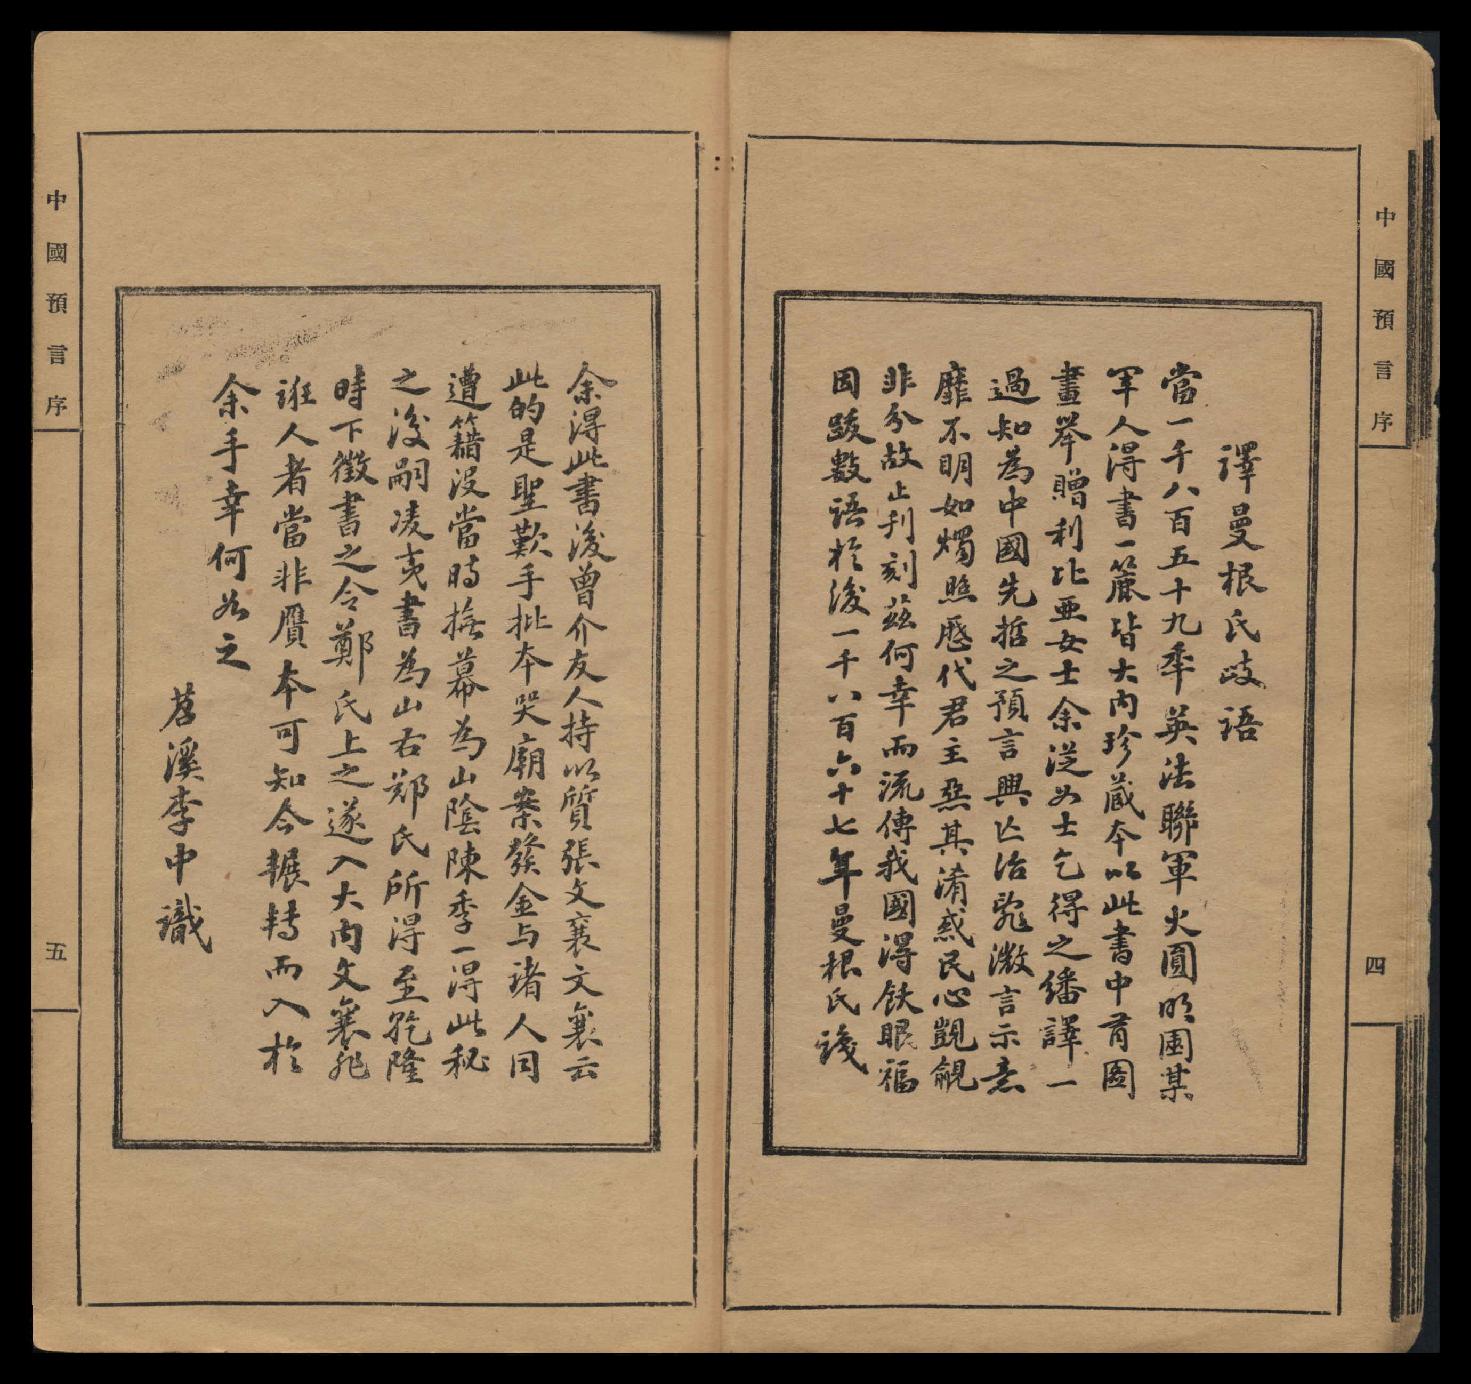 中國預言序
四
譯曼根氏跋語
當一千八百五十九年英法聯軍火圓明園某
軍人得書一簏皆大內珍藏本以此書中有圖
畫舉贈利比亞女士余從女士乞得之繙譯一
過知為中國先哲之預言興亡治亂微言示意
靡不明如燭照歷代君主惡其淆惑民心覬覦
非分故止刋刻茲何幸而流傳我國得飫眼福
因跋數語於後一千八百六十七年曼根氏識
中國預言序
五
余得此書後曾介友人持以質張文襄文襄云
此的是聖歎手批本哭廟案發金与諸人同
遭籍沒當時撫幕為山陰陳季一得此秘
之後嗣凌夷書為山右鄭氏所得至乾隆
時下徵書之令鄭氏上之遂入大內文襄非
誑人者當非贋本可知今輾轉而入於
余手幸何如之
苕溪李中識